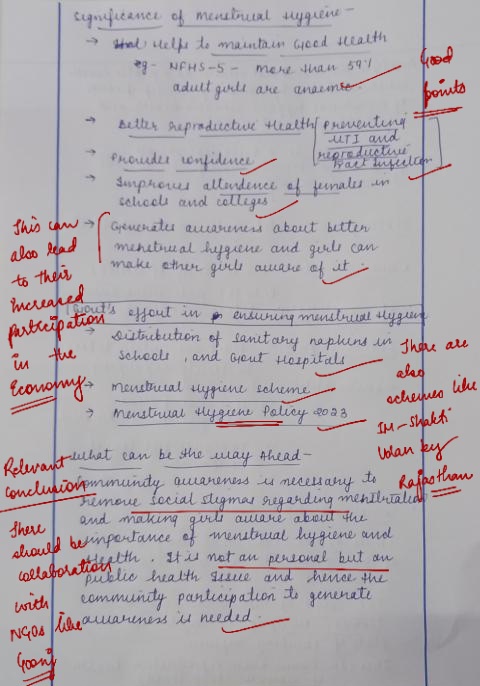 Significance of Menstrual Hygiene -
→ Helps to maintain Good Health
eg - NFHS-5 - More than 59%
adult girls are anaemic.
Good
points
→ Better reproductive Health [Preventing
UTI and
reproductive
tract infection]
→ Provides confidence
→ Improves attendence of females in
schools and colleges
→ Generates awareness about better
menstrual hygiene and girls can
make other girls aware of it.
This can
also lead
to their
increased
participation
in the
Economy
Govt's effort in ensuring menstrual Hygiene
→ Distribution of sanitary napkins in
schools, and Govt Hospitals
→ Menstrual Hygiene scheme
→ Menstrual Hygiene Policy 2023
There are
also
schemes like
IM-Shakti
Udan by
Rajasthan
What can be the way Ahead -
Community awareness is necessary to
remove social stigmas regarding menstruation
and making girls aware about the
importance of menstrual hygiene and
Health. It is not an personal but an
public health issue and hence the
community participation to generate
awareness is needed.
Relevant
conclusion
There
should be
collaboration
with
NGOs like
Goonj